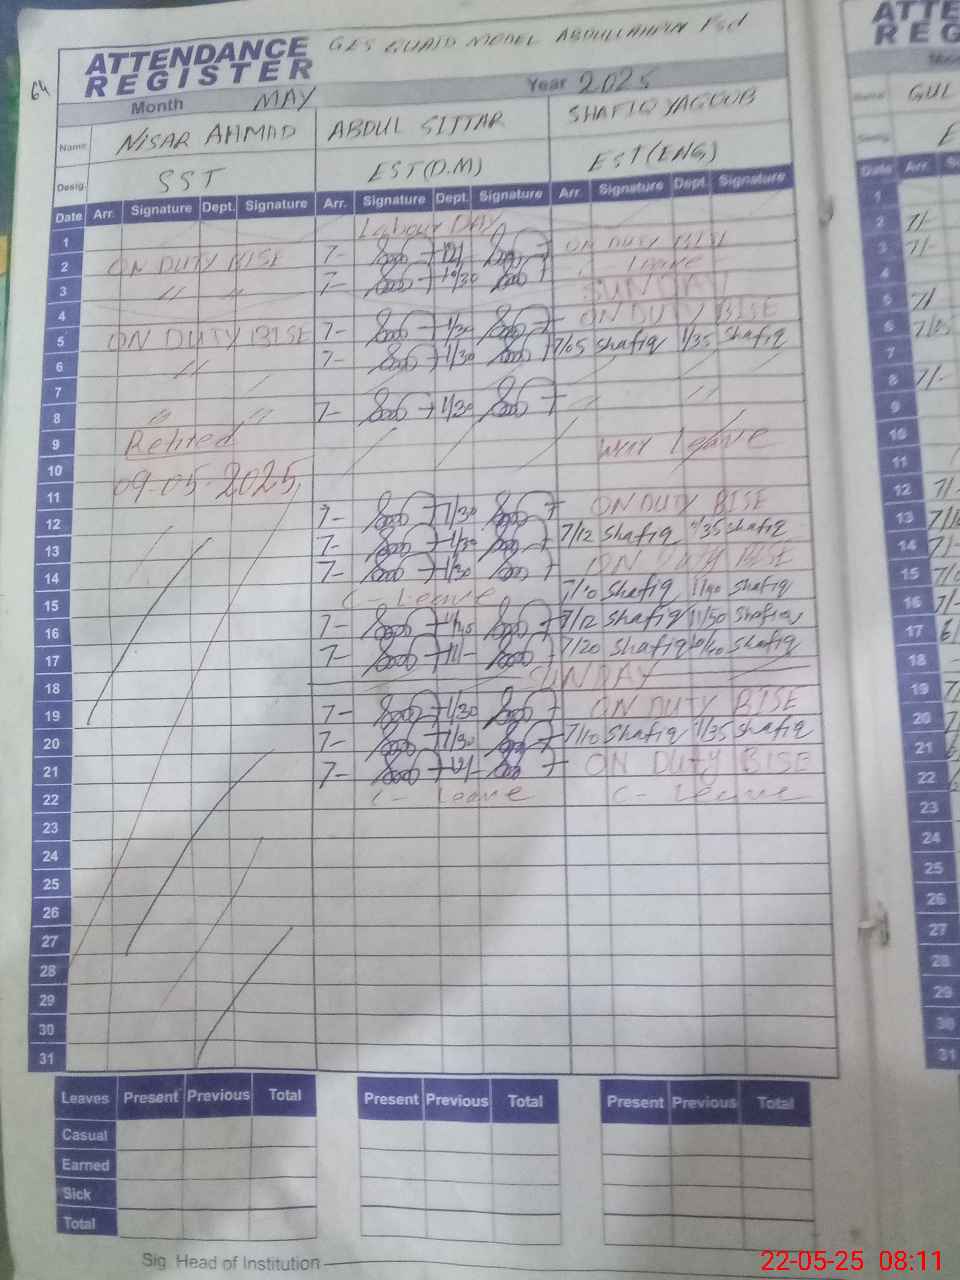 64
ATTENDANCE REGISTER
Month MAY Year 2025
Name NISAR AHMAD ABDUL SITTAR SHAFIQ YAQOOB
Desig. SST EST(D.M) EST(ENG)
Date Arr. Signature Dept. Signature Arr. Signature Dept. Signature Arr. Signature Dept. Signature
1 Labour DAY
2 ON DUTY BISE 7- 12/ ON DUTY BISE
3 " " 7- 10/30 Leave
4 SUNDAY
5 ON DUTY BISE 7- 1/30 ON DUTY BISE
6 " 7- 1/30 7/05 Shafiq 1/35 Shafiq
7
8 " " 7- 1/30 " "
9 Retired Leave
10 09-05-2025
11
12 7- 1/30 ON DUTY BISE
13 7- 1/30 7/12 Shafiq 1/35 Shafiq
14 7- 1/30 ON DUTY BISE
15 C-Leave 7/10 Shafiq 11/40 Shafiq
16 7- 11/45 7/12 Shafiq 11/50 Shafiq
17 7- 11/- 7/20 Shafiq Shafiq
18 SUNDAY
19 7- 1/30 ON DUTY BISE
20 7- 1/30 7/10 Shafiq 1/35 Shafiq
21 7- 12/- ON DUTY BISE
22 C-Leave C-Leave
23
24
25
26
27
28
29
30
31
Leaves Present Previous Total Present Previous Total Present Previous Total
Casual
Earned
Sick
Total
Sig. Head of Institution
ATTE
REG
GUL
E
Date Arr.
1
2 7/-
3 7/-
4
5 7/
6 7/05
7
8 7/-
9
10
11
12 7/-
13
14 7/-
15
16 7/-
17
18
19
20
21
22
23
24
25
26
27
28
29
30
31
22-05-25 08:11